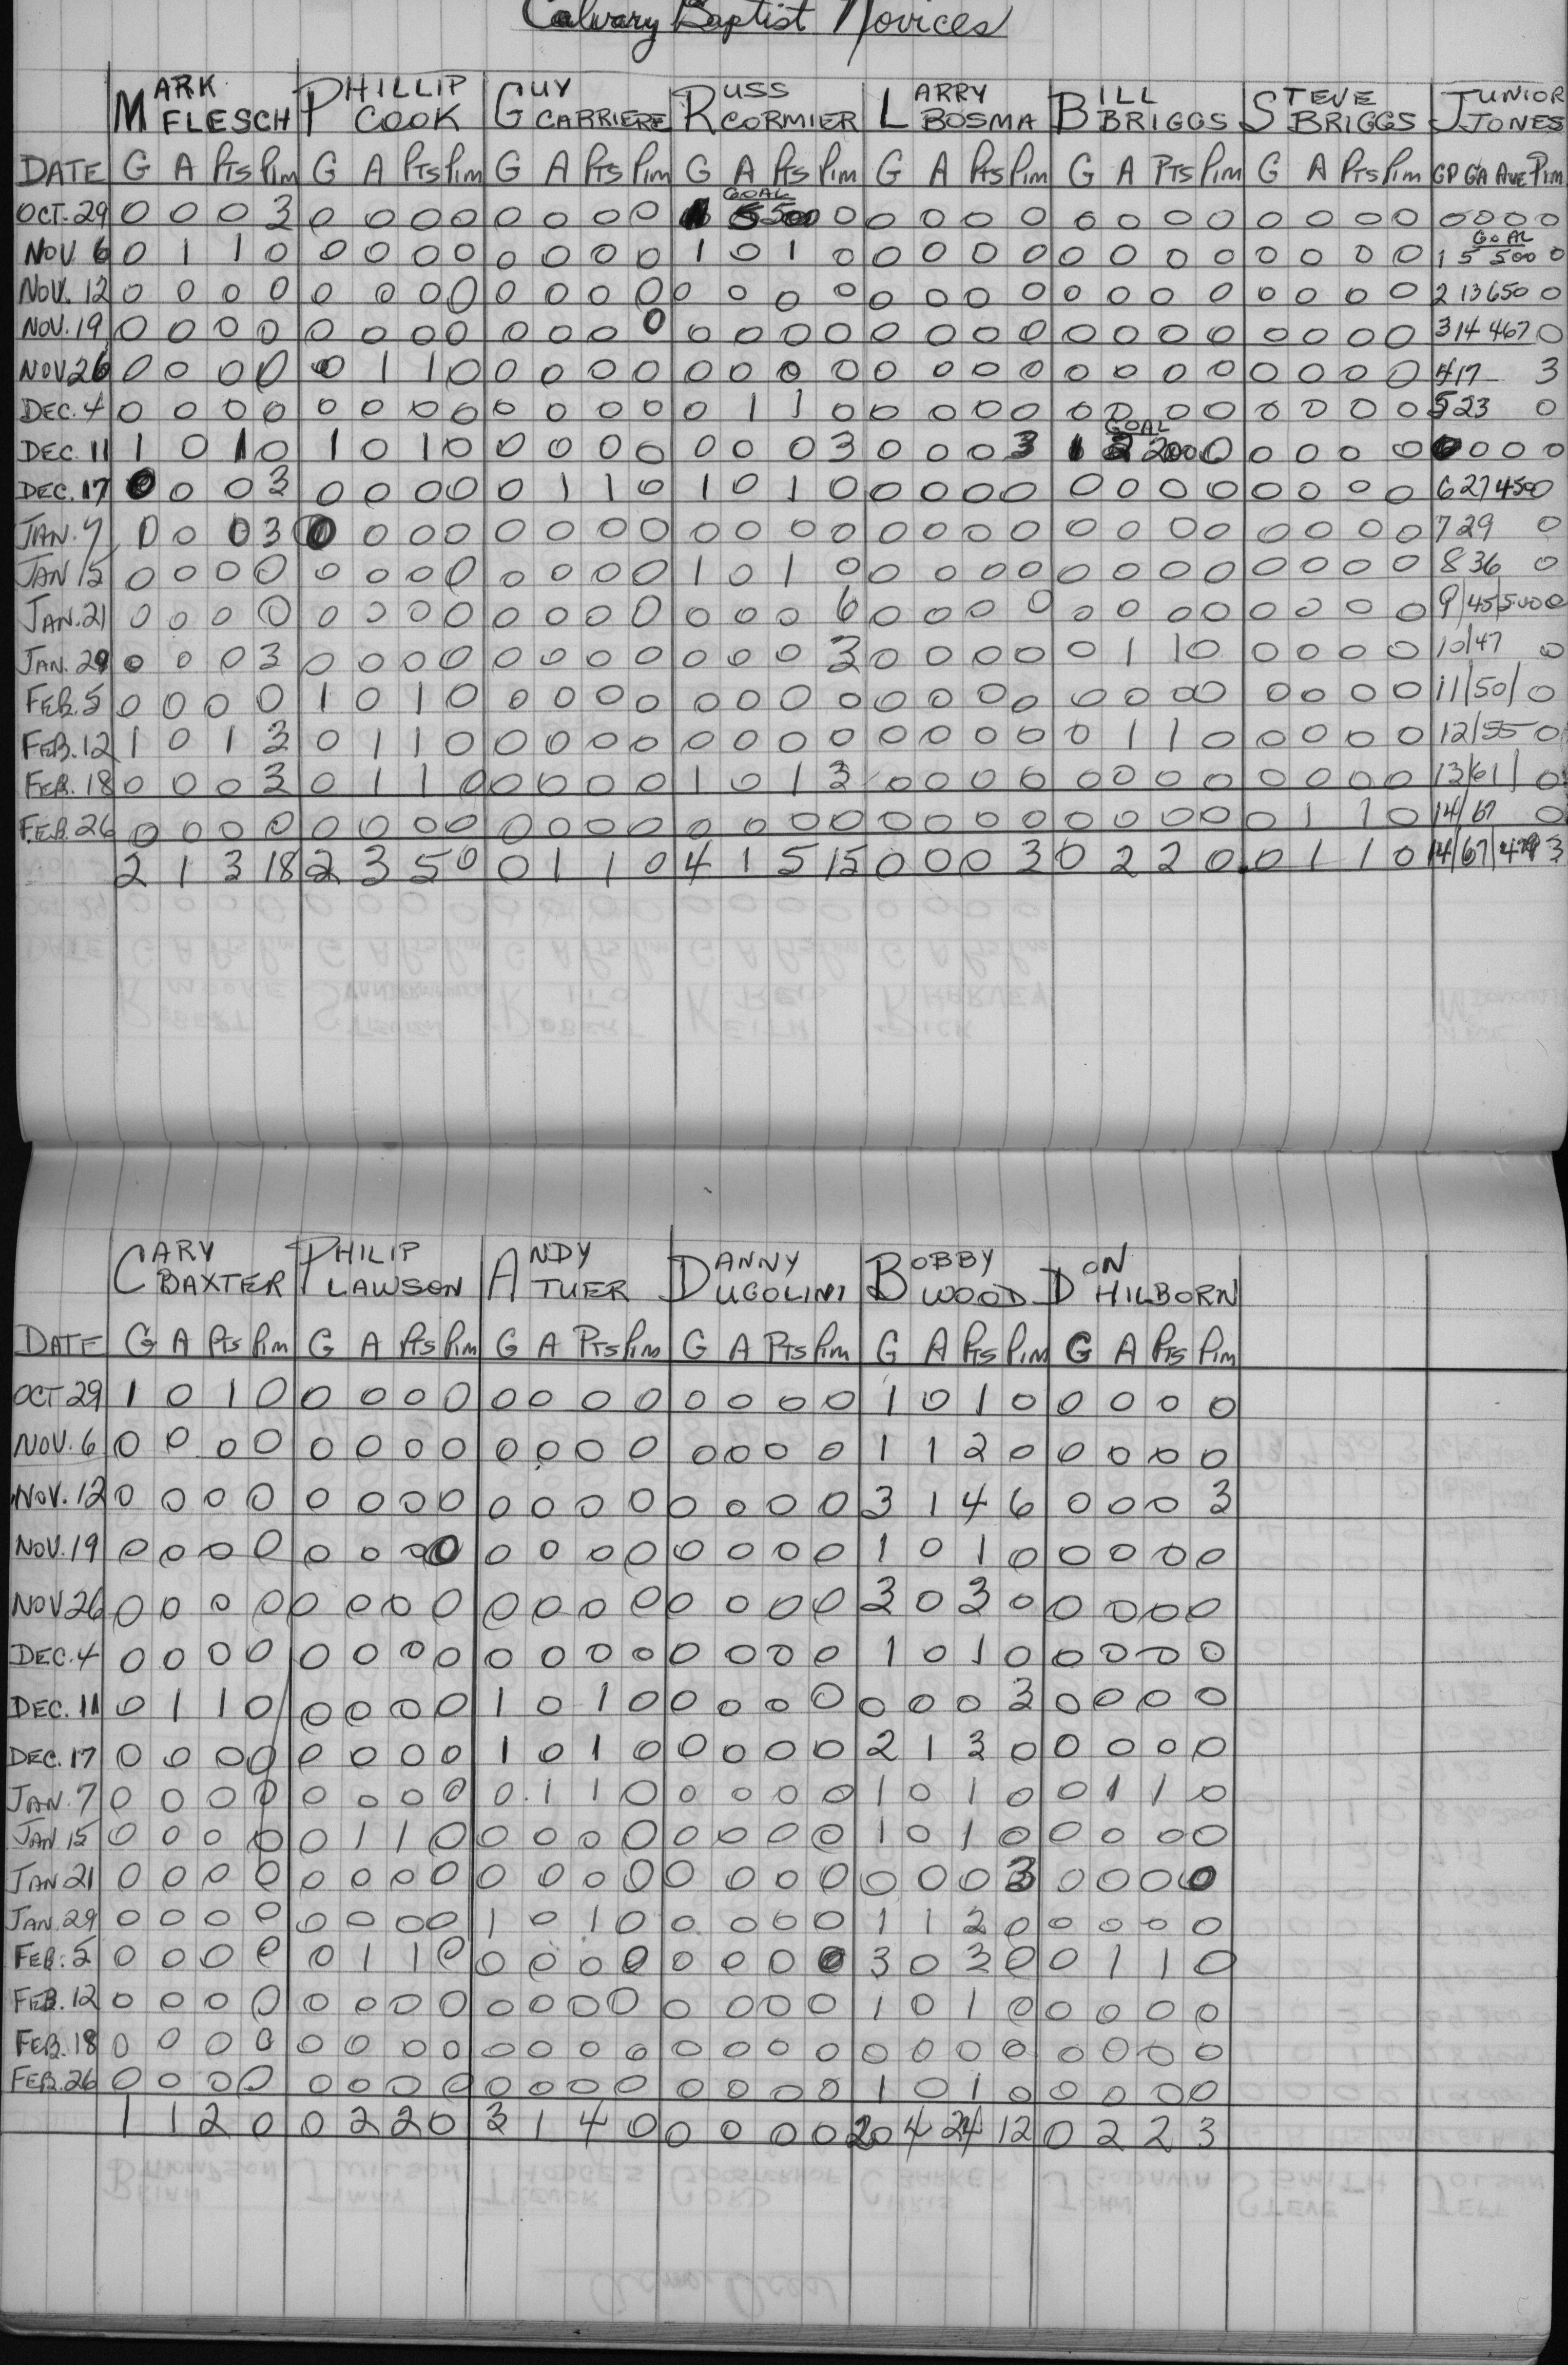 Calvary Baptist Novices
MARK FLESCH PHILLIP COOK GUY CARRIERE RUSS CORMIER LARRY BOSMA BILL BRIGGS STEVE BRIGGS JUNIOR JONES
DATE G A Pts Pim G A Pts Pim G A Pts Pim G A Pts Pim G A Pts Pim G A Pts Pim G A Pts Pim GP GA Ave Pim
OCT. 29 0 0 0 3 0 0 0 0 0 0 0 0 1 GOAL 5 500 0 0 0 0 0 0 0 0 0 0 0 0 0 0 0 0 0
NOV 6 0 1 1 0 0 0 0 0 0 0 0 0 1 0 1 0 0 0 0 0 0 0 0 0 0 0 0 0 1 5 GOAL 500 0
NOV. 12 0 0 0 0 0 0 0 0 0 0 0 0 0 0 0 0 0 0 0 0 0 0 0 0 0 0 0 0 2 13 650 0
NOV. 19 0 0 0 0 0 0 0 0 0 0 0 0 0 0 0 0 0 0 0 0 0 0 0 0 0 0 0 0 3 14 467 0
NOV 26 0 0 0 0 0 1 1 0 0 0 0 0 0 0 0 0 0 0 0 0 0 0 0 0 0 0 0 0 4 17 3
DEC. 4 0 0 0 0 0 0 0 0 0 0 0 0 0 1 1 0 0 0 0 0 0 0 0 0 0 0 0 0 5 23 0
DEC. 11 1 0 1 0 1 0 1 0 0 0 0 0 0 0 0 3 0 0 0 3 1 GOAL 2 200 0 0 0 0 0 0 0 0 0
DEC. 17 0 0 0 3 0 0 0 0 0 1 1 0 1 0 1 0 0 0 0 0 0 0 0 0 0 0 0 0 6 27 450 0
JAN. 7 0 0 0 3 0 0 0 0 0 0 0 0 0 0 0 0 0 0 0 0 0 0 0 0 0 0 0 0 7 29 0
JAN 15 0 0 0 0 0 0 0 0 0 0 0 0 1 0 1 0 0 0 0 0 0 0 0 0 0 0 0 0 8 36 0
JAN. 21 0 0 0 0 0 0 0 0 0 0 0 0 0 0 0 6 0 0 0 0 0 0 0 0 0 0 0 0 9/45/500 0
JAN. 29 0 0 0 3 0 0 0 0 0 0 0 0 0 0 0 3 0 0 0 0 0 1 1 0 0 0 0 0 10/47 0
FEB. 5 0 0 0 0 1 0 1 0 0 0 0 0 0 0 0 0 0 0 0 0 0 0 0 0 0 0 0 0 11/50/ 0
FEB. 12 1 0 1 3 0 1 1 0 0 0 0 0 0 0 0 0 0 0 0 0 0 1 1 0 0 0 0 0 12/55 0
FEB. 18 0 0 0 3 0 1 1 0 0 0 0 0 1 0 1 3 0 0 0 0 0 0 0 0 0 0 0 0 13/61/ 0
FEB. 26 0 0 0 0 0 0 0 0 0 0 0 0 0 0 0 0 0 0 0 0 0 0 0 0 0 1 1 0 14/67 0
2 1 3 18 2 3 5 0 0 1 1 0 4 1 5 15 0 0 0 3 0 2 2 0 0 1 1 0 14/67/479 3
CARY BAXTER PHILIP LAWSON ANDY TUER DANNY UGOLINI BOBBY WOOD DON HILBORN
DATE G A Pts Pim G A Pts Pim G A Pts Pim G A Pts Pim G A Pts Pim G A Pts Pim
OCT 29 1 0 1 0 0 0 0 0 0 0 0 0 0 0 0 0 1 0 1 0 0 0 0 0
NOV. 6 0 0 0 0 0 0 0 0 0 0 0 0 0 0 0 0 1 1 2 0 0 0 0 0
NOV. 12 0 0 0 0 0 0 0 0 0 0 0 0 0 0 0 0 3 1 4 6 0 0 0 3
NOV. 19 0 0 0 0 0 0 0 0 0 0 0 0 0 0 0 0 1 0 1 0 0 0 0 0
NOV 26 0 0 0 0 0 0 0 0 0 0 0 0 0 0 0 0 3 0 3 0 0 0 0 0
DEC. 4 0 0 0 0 0 0 0 0 0 0 0 0 0 0 0 0 1 0 1 0 0 0 0 0
DEC. 11 0 1 1 0 0 0 0 0 1 0 1 0 0 0 0 0 0 0 0 3 0 0 0 0
DEC. 17 0 0 0 0 0 0 0 0 1 0 1 0 0 0 0 0 2 1 3 0 0 0 0 0
JAN. 7 0 0 0 0 0 0 0 0 0 1 1 0 0 0 0 0 1 0 1 0 0 1 1 0
JAN 15 0 0 0 0 0 1 1 0 0 0 0 0 0 0 0 0 1 0 1 0 0 0 0 0
JAN 21 0 0 0 0 0 0 0 0 0 0 0 0 0 0 0 0 0 0 0 3 0 0 0 0
JAN. 29 0 0 0 0 0 0 0 0 1 0 1 0 0 0 0 0 1 1 2 0 0 0 0 0
FEB. 5 0 0 0 0 0 1 1 0 0 0 0 0 0 0 0 0 3 0 3 0 0 1 1 0
FEB. 12 0 0 0 0 0 0 0 0 0 0 0 0 0 0 0 0 1 0 1 0 0 0 0 0
FEB. 18 0 0 0 0 0 0 0 0 0 0 0 0 0 0 0 0 0 0 0 0 0 0 0 0
FEB. 26 0 0 0 0 0 0 0 0 0 0 0 0 0 0 0 0 1 0 1 0 0 0 0 0
1 1 2 0 0 2 2 0 3 1 4 0 0 0 0 0 20 4 24 12 0 2 2 3